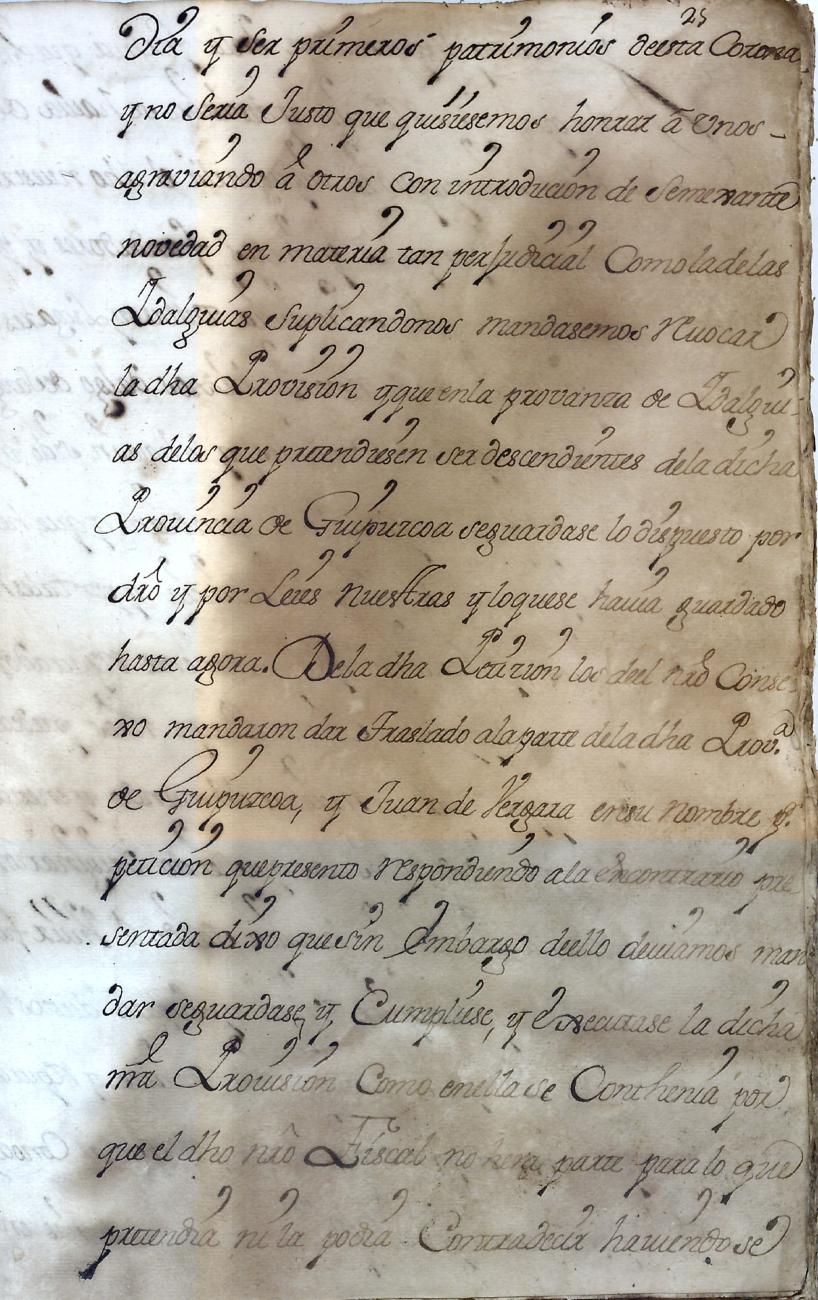 25
dia y ser primeros patrimonios deesta Corona
y no seria Justo que quisiesemos honrar â Vnos -
agraviando â otros con introducion de semexante
novedad en materia tan perJudicial Comoladelas
Ydalguias suplicandonos mandasemos rEuocar
la dha Provision yque enla provanza de Ydalgui-
as delos que pretendiesen ser descendientes dela dicha
Provincia de Guipuzcoa seguardase lo dispuesto por
dro y por Leies nuestras y loquese havia guardado
hasta agora. Dela dha Peticion los deel nro Conse-
xo mandaron dar Traslado ala parte dela dha Prova
de Guipuzcoa, y Juan de Vergara ensu nombre p.
peticion quepresento rEspondiendo ala encontrario pre
sentada dixo que sin Embargo deello deviamos man
dar seguardase, y Cumpliese, y Executase la dicha
nra Provision Como enella se Conthenia por
que el dho nro Fiscal no hera parte para lo que
pretendia ni la podia Contradecir haviendose